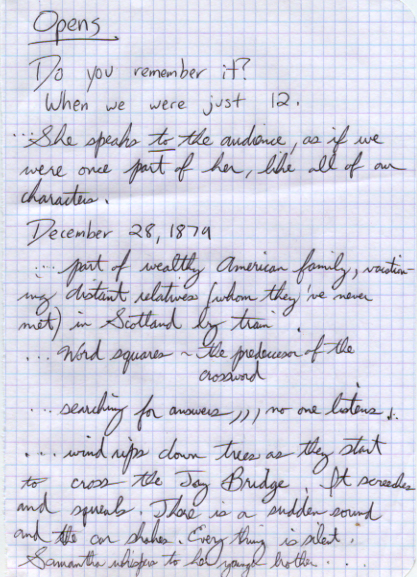 Opens
Do you remember it?
When we were just 12.
...She speaks to the audience, as if we
were once part of her, like all of our
characters.
December 28, 1879
... part of wealthy American family, vacation-
ing distant relatives (whom they've never
met) in Scotland by train.
... Word squares ~ the predecessor of the
crossword
... searching for answers,,,, no one listens.
... wind rips down trees as they start
to cross the Tay Bridge. It screeches
and squeals. There is a sudden sound
and the car shakes. Everything is silent.
Samantha whispers to her younger brother...